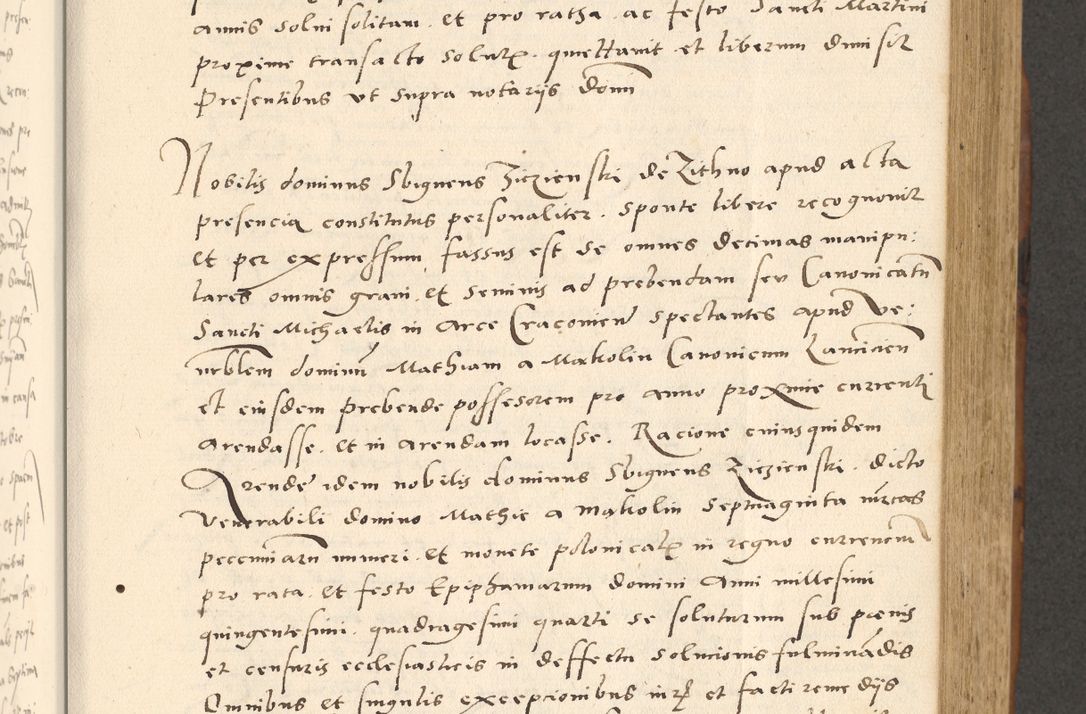 annis solui solitam. et pro ratha. ac festo Sancti Martini
proxime transacto solutt. quiettauit et liberum dimisit
Presentibus vt supra notarijs domi
Nobilis dominus Sbigneus Ziczienski de Zithno apud acta
presencia constitutus personaliter. sponte libere recognouit
et per expressum fassus est se omnes decimas manipu:
lares omnis grani. et seminis ad prebendam seu Canonicatū
Sancti Michaelis in Arce Cracouien spectantes apud Ve:
nrblem dominū Mathiam a Makolin Canonicum Lanciciēn
et eiusdem prebende possesorem pro anno proxime currenti
Arendasse. et in arendam locasse. Racione cuiusquidem
Arende idem nobilis dominus Sbigneus Ziczienski. dicto
Venerabili domino Mathie a Makolin septuaginta mrcas
pecceniarū numeri. et monete polonicalt in regno currencium
pro rata. et festo Epiphaniarum domini Anni millesimi
quingentesimi. quadragesimi quarti se soluturum sub pœnis
et censuris ecclesiasticis in deffectu solucionis fulminādis
Omnibus et singulis excepcionibus et facti remedijs